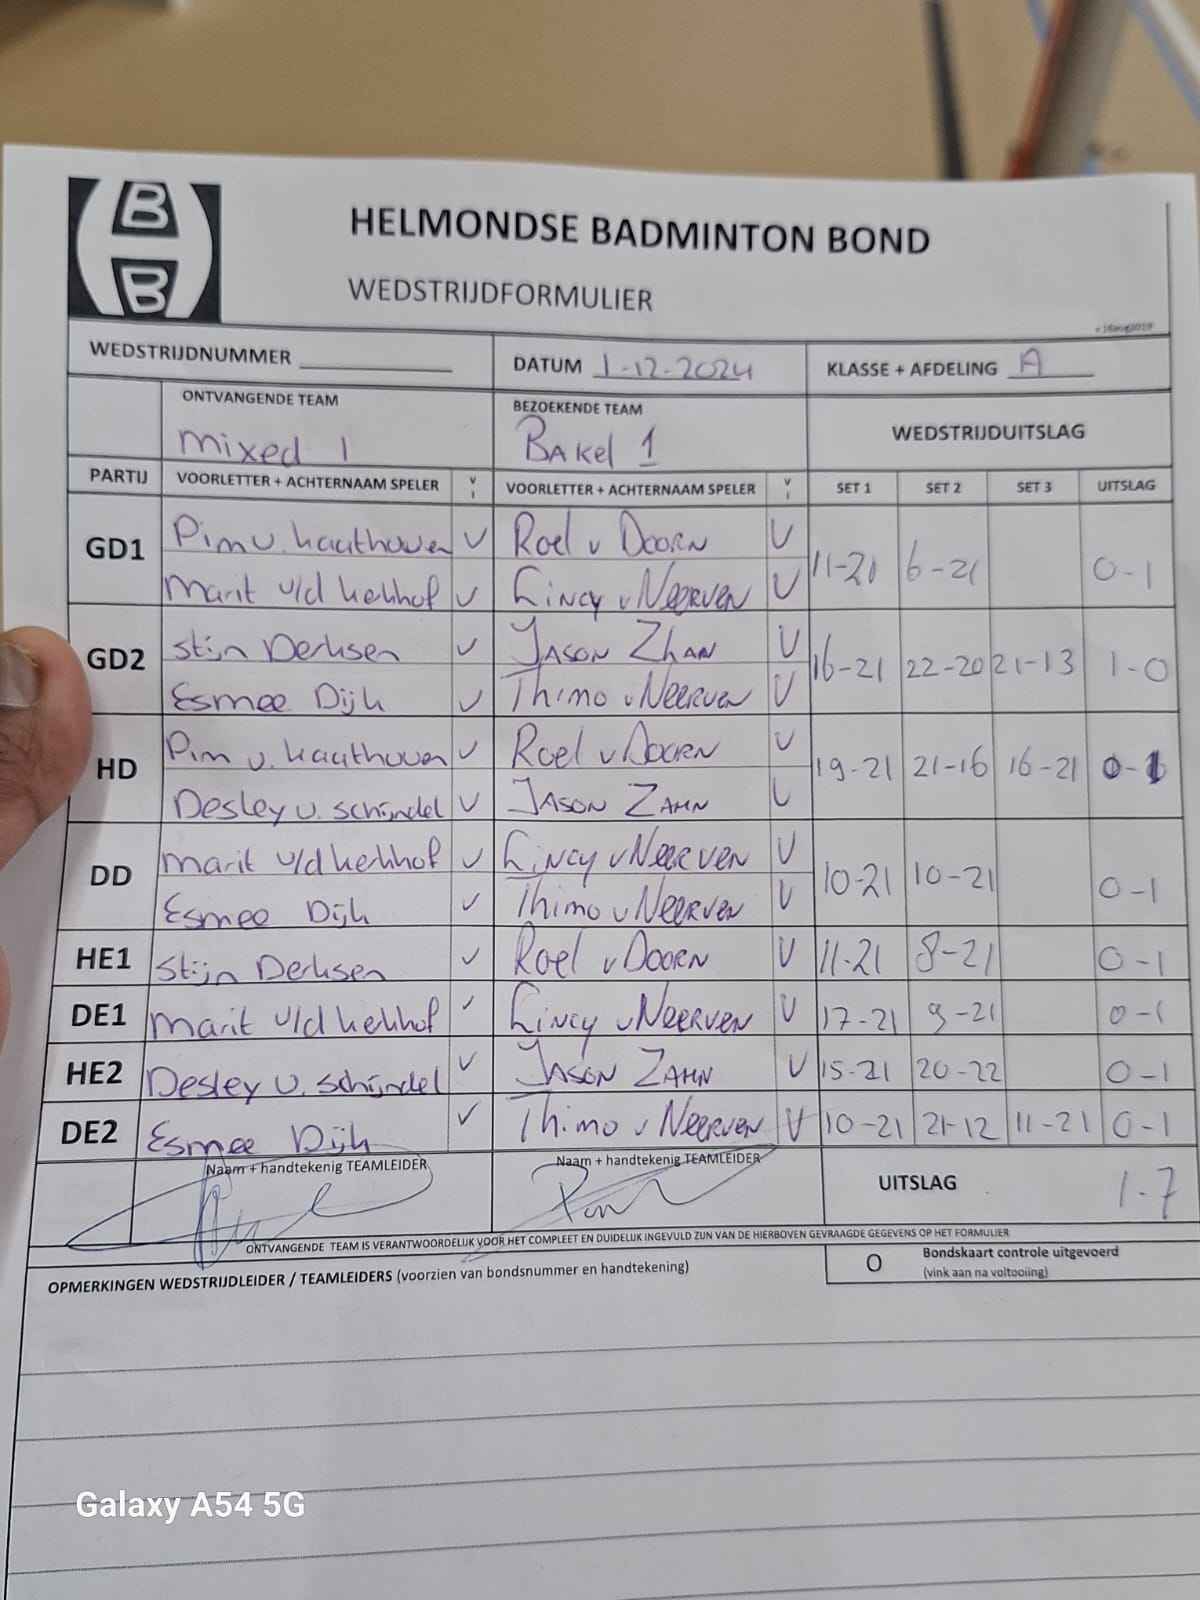 B
B
HELMONDSE BADMINTON BOND
WEDSTRIJDFORMULIER
WEDSTRIJDNUMMER DATUM 1-12-2024 KLASSE + AFDELING A
ONTVANGENDE TEAM BEZOEKENDE TEAM WEDSTRIJDUITSLAG
mixed 1 BAKel 1
PARTIJ VOORLETTER + ACHTERNAAM SPELER V I VOORLETTER + ACHTERNAAM SPELER V I SET 1 SET 2 SET 3 UITSLAG
GD1 Pim v. haathoven V Roel v DOORN V 11-21 6-21 0-1
Marit v/d kerkhof V Lincy v NEERVEN V
GD2 Stijn Derksen V JASON ZHAN V 16-21 22-20 21-13 1-0
Esmee Dijk V Thimo v NEERVEN V
HD Pim v. haathoven V Roel v DOORN V 19-21 21-16 16-21 0-1
Desley v. schijndel V JASON ZAHN V
DD Marit v/d kerkhof V Lincy v NEERVEN V 10-21 10-21 0-1
Esmee Dijk V Thimo v NEERVEN V
HE1 Stijn Derksen V Roel v DOORN V 11-21 8-21 0-1
DE1 Marit v/d kerkhof V Lincy v NEERVEN V 17-21 9-21 0-1
HE2 Desley v. schijndel V JASON ZAHN V 15-21 20-22 0-1
DE2 Esmee Dijk V Thimo v NEERVEN V 10-21 21-12 11-21 0-1
Naam + handtekenig TEAMLEIDER Naam + handtekenig TEAMLEIDER UITSLAG 1-7
ONTVANGENDE TEAM IS VERANTWOORDELIJK VOOR HET COMPLEET EN DUIDELIJK INGEVULD ZIJN VAN DE HIERBOVEN GEVRAAGDE GEGEVENS OP HET FORMULIER
OPMERKINGEN WEDSTRIJDLEIDER / TEAMLEIDERS (voorzien van bondsnummer en handtekening) O Bondskaart controle uitgevoerd
(vink aan na voltooiing)
Galaxy A54 5G